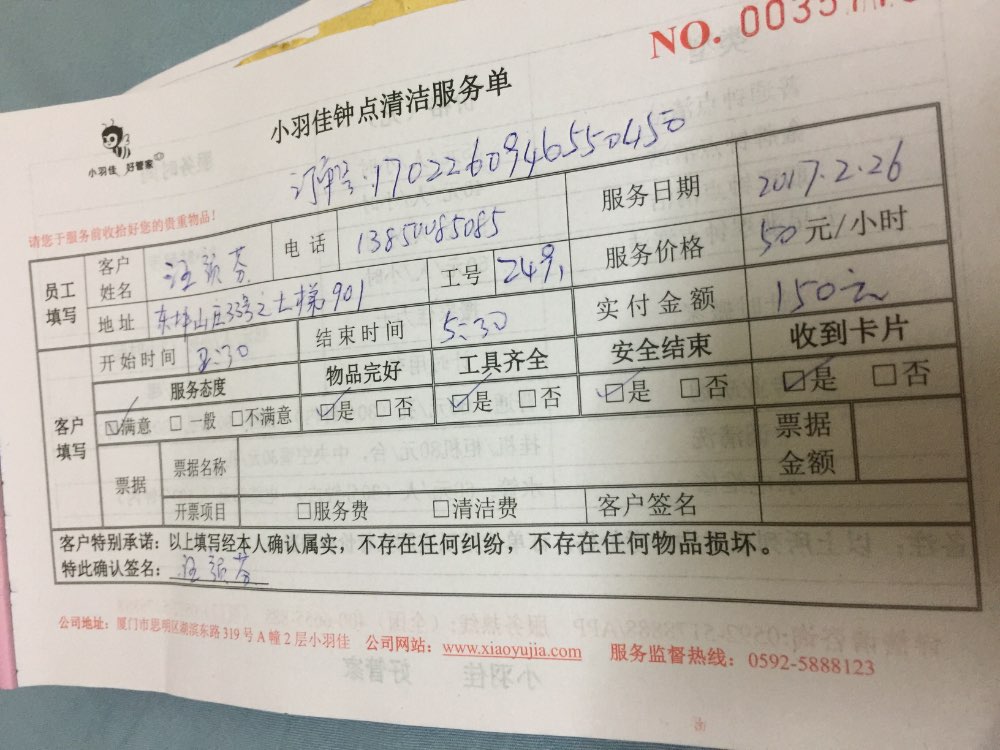 NO. 00357
小羽佳钟点清洁服务单
小羽佳 好管家
订单号:1702260946550450
请您于服务前收拾好您的贵重物品!
员工填写 客户姓名 电话 13850085085 服务日期 2017.2.26
地址 901 工号 249 服务价格 50元/小时
开始时间 2:30 结束时间 5:30 实付金额 150元
客户填写 服务态度 物品完好 工具齐全 安全结束 收到卡片
☑满意 □一般 □不满意 ☑是 □否 ☑是 □否 ☑是 □否 ☑是 □否
票据 票据名称 票据金额
开票项目 □服务费 □清洁费 客户签名
客户特别承诺:以上填写经本人确认属实,不存在任何纠纷,不存在任何物品损坏。
特此确认签名:
公司地址:厦门市思明区湖滨东路319号A幢2层小羽佳 公司网站:www.xiaoyujia.com 服务监督热线:0592-5888123